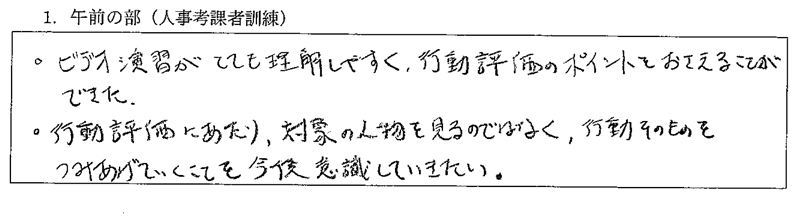 1. 午前の部（人事考課者訓練）
。ビデオ演習がとても理解しやすく、行動評価のポイントをおさえることが
できた。
。行動評価にあたり、対象の人物を見るのではなく、行動そのものを
つみあげていくことを今後意識していきたい。